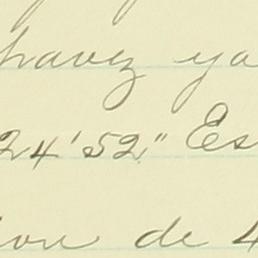 havez ya
24'52" Es
ion de 4